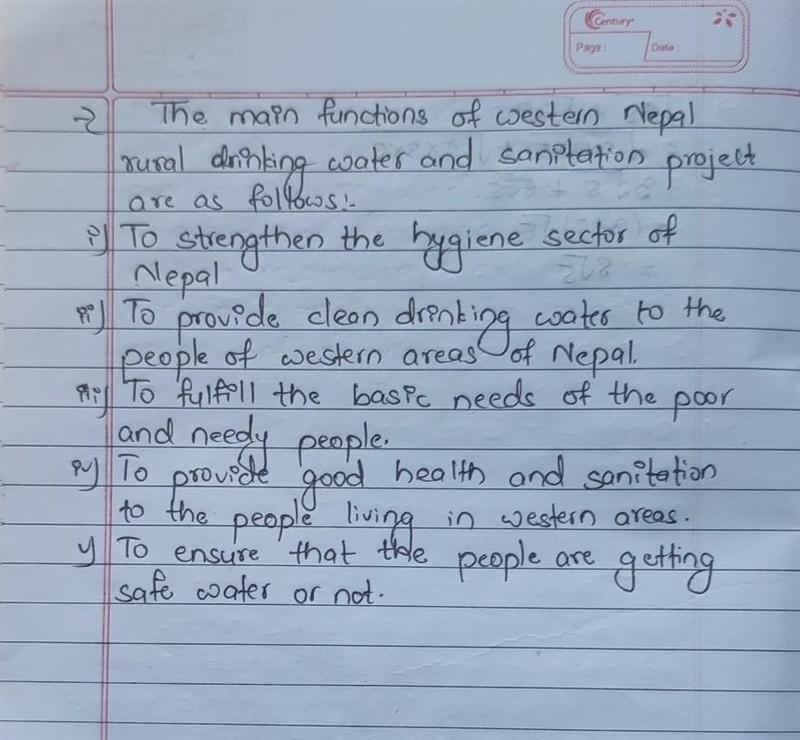 Century
Page : Date :
→ The main functions of western Nepal
rural drinking water and sanitation project
are as follows:-
i) To strengthen the hygiene sector of
Nepal
ii) To provide clean drinking water to the
people of western areas of Nepal.
iii) To fulfill the basic needs of the poor
and needy people.
iv) To provide good health and sanitation
to the people living in western areas.
v) To ensure that the people are getting
safe water or not.